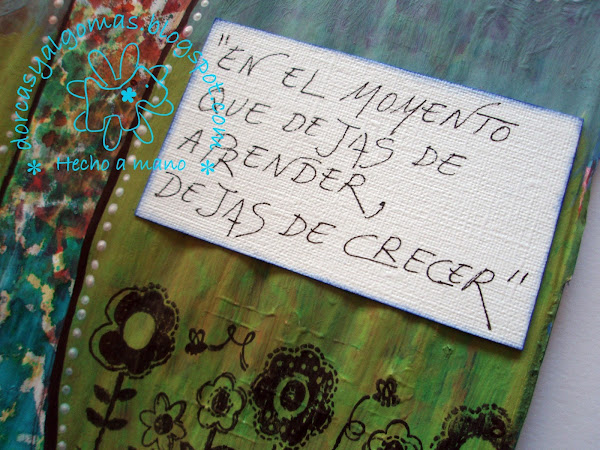 "EN EL MOMENTO
QUE DEJAS DE
APRENDER,
DEJAS DE CRECER"
dorcasyalgomas.blogspot.com
Hecho a mano